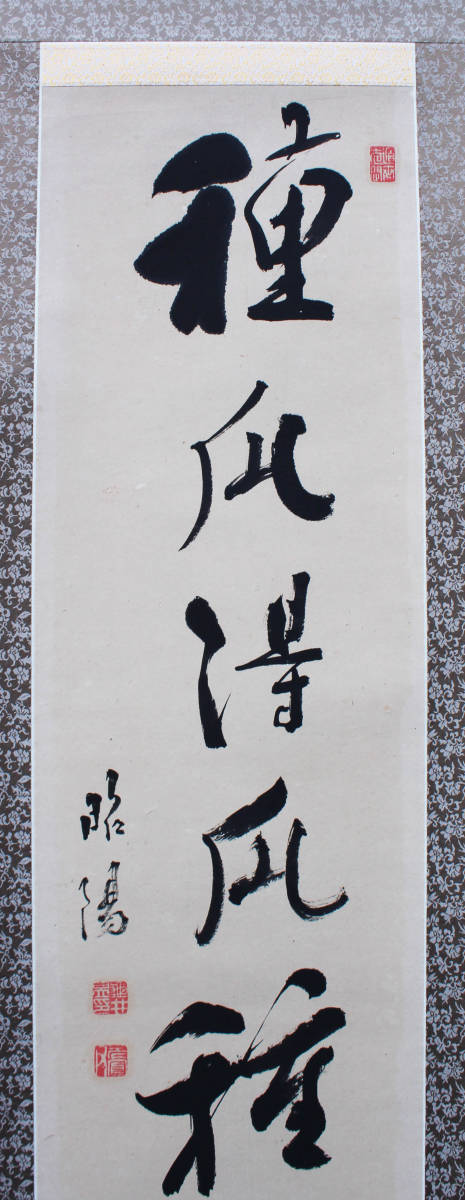 種瓜得瓜種
昭陽